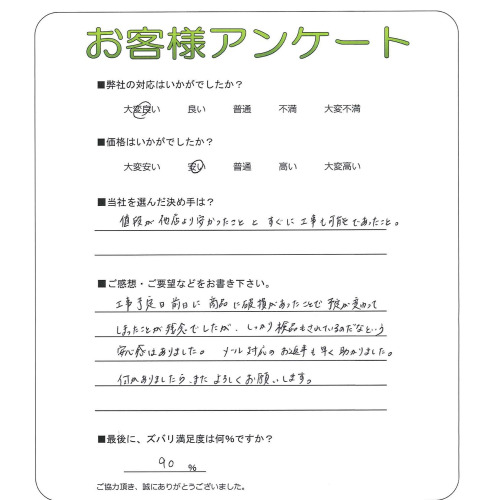 お客様アンケート
■弊社の対応はいかがでしたか？
大変良い 良い 普通 不満 大変不満
■価格はいかがでしたか？
大変安い 安い 普通 高い 大変高い
■当社を選んだ決め手は？
値段が他店より安かったこと と すぐに工事も可能であったこと。
■ご感想・ご要望などをお書き下さい。
工事予定日前日に商品に破損があったことで予定が変わって
しまったことが残念でしたが、しっかり検品もされているのだなという
安心感はありました。 メール対応のお返事も早く助かりました。
何かありましたら、また よろしくお願いします。
■最後に、ズバリ満足度は何％ですか？
90 %
ご協力頂き、誠にありがとうございました。